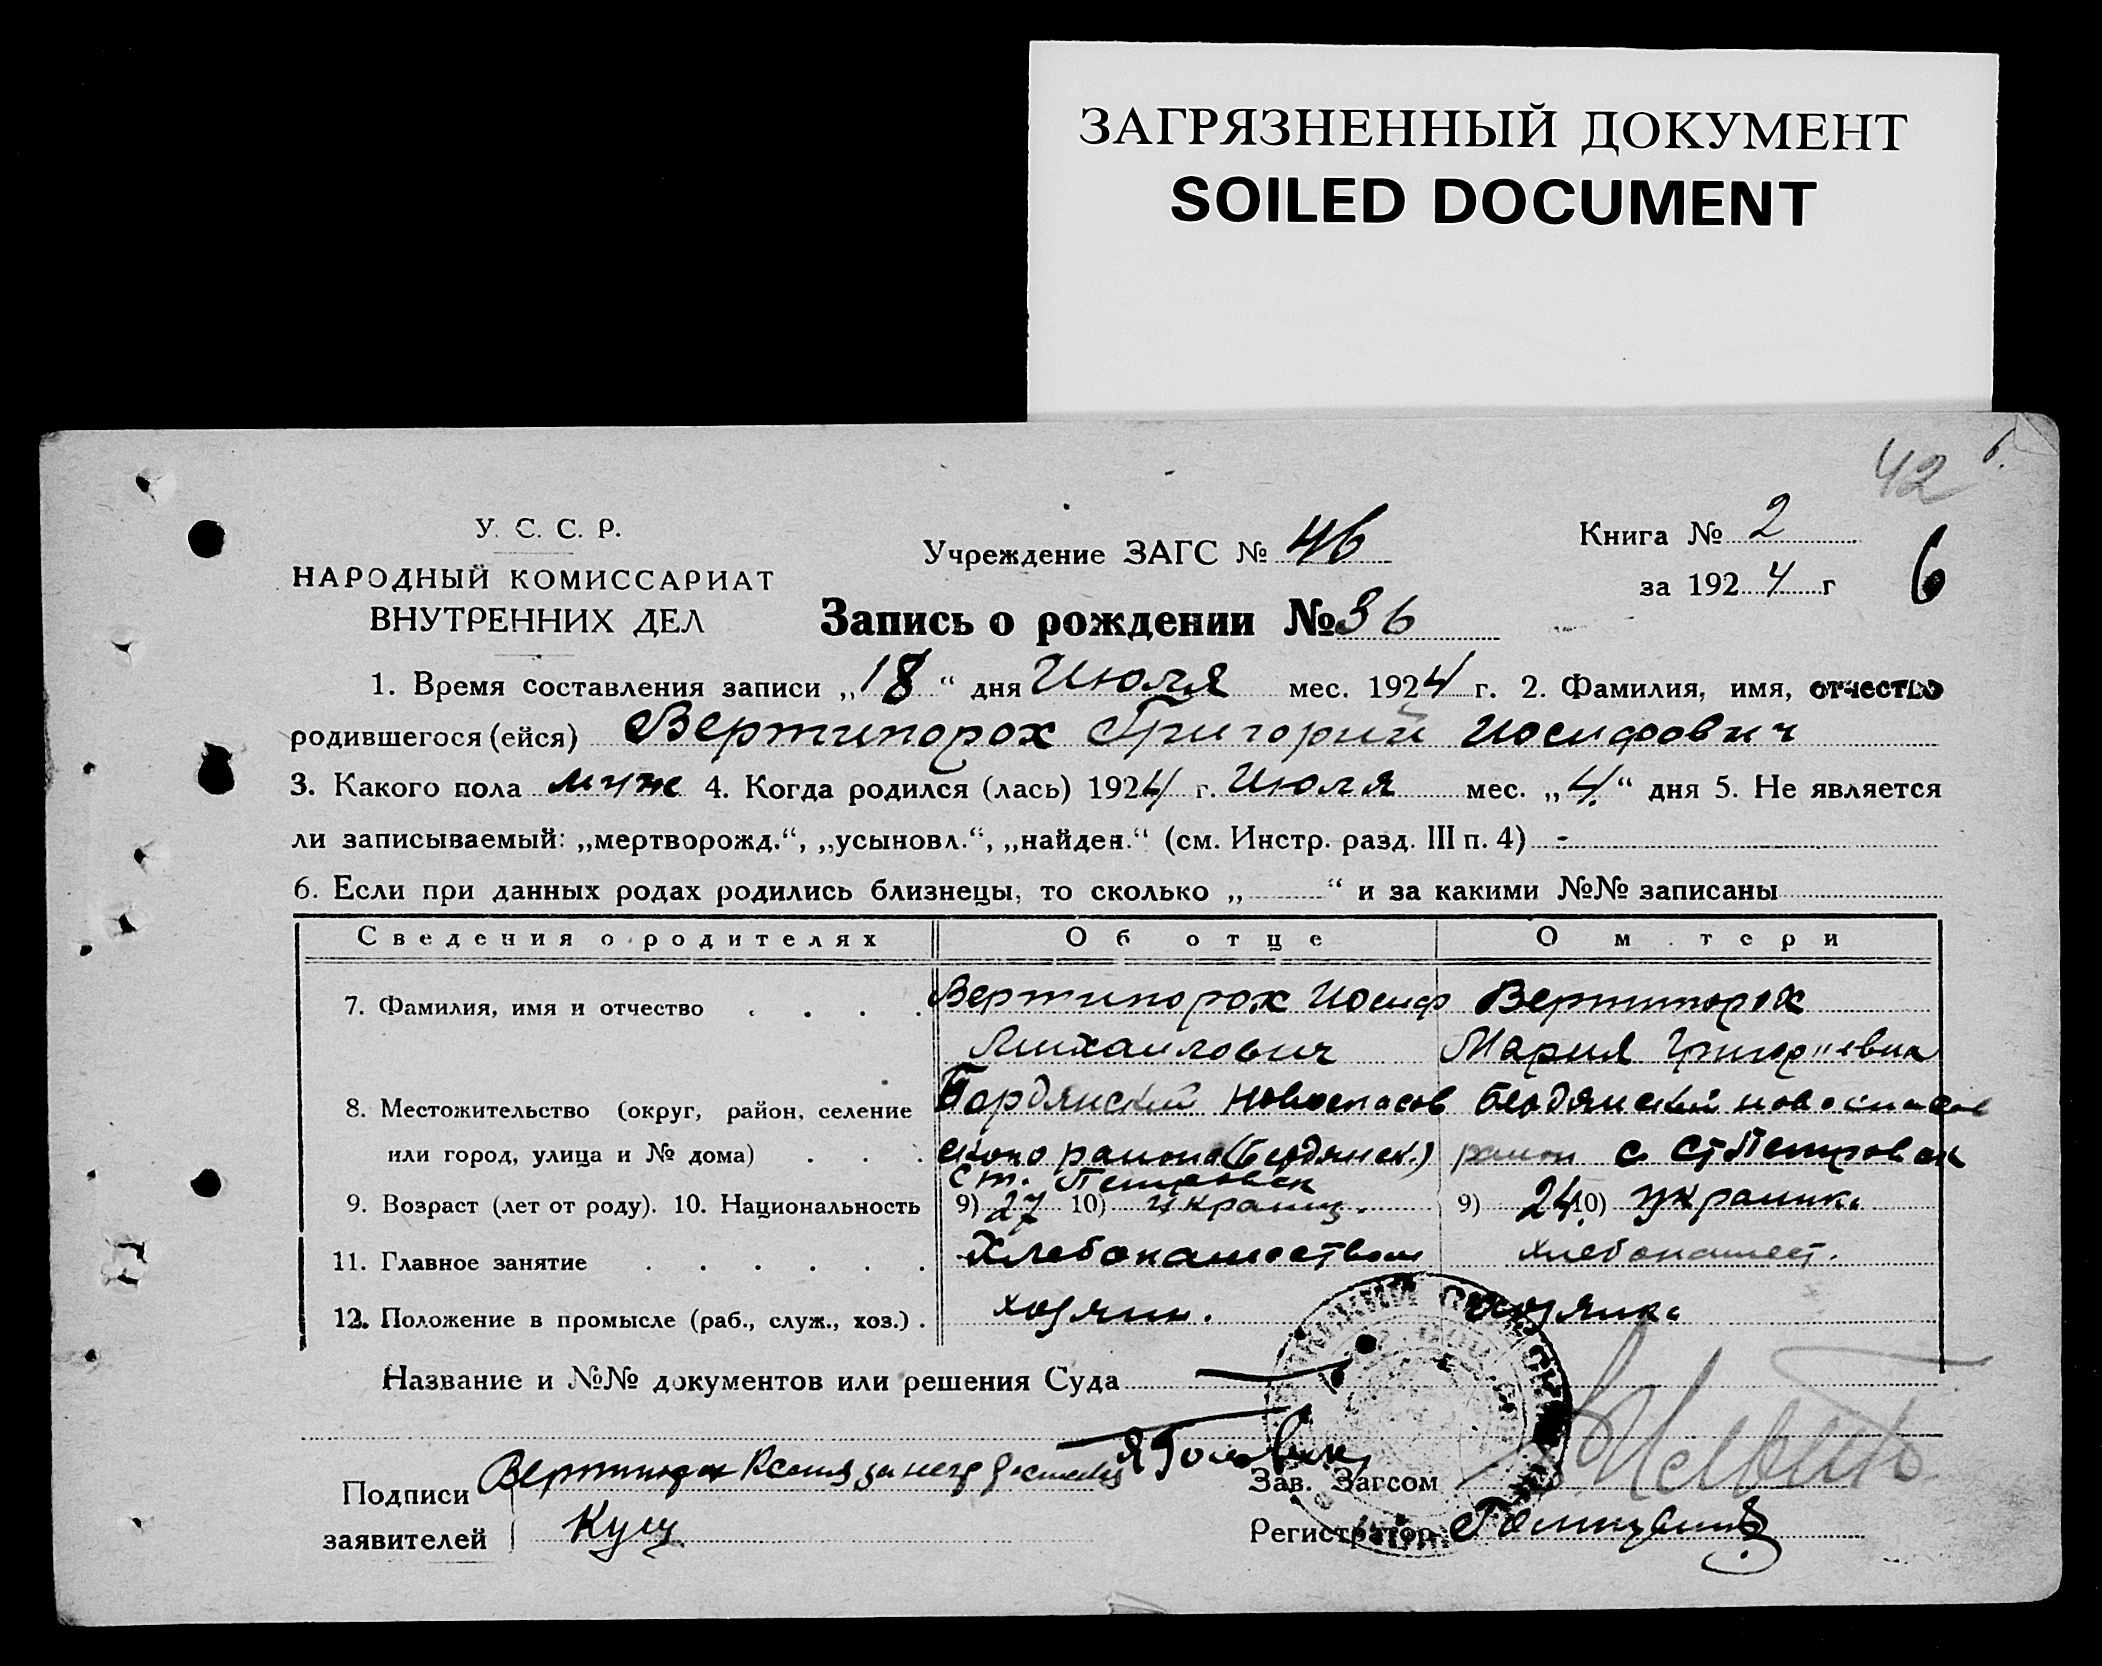 ЗАГРЯЗНЕННЫЙ ДОКУМЕНТ
SOILED DOCUMENT
42
6
У. С. С. Р.
НАРОДНЫЙ КОМИССАРИАТ
ВНУТРЕННИХ ДЕЛ
Учреждение ЗАГС № 46
Книга № 2
за 1924 г
Запись о рождении № 36
1. Время составления записи „18“ дня Июля мес. 1924 г. 2. Фамилия, имя, отчество
родившегося (ейся) Вертипорох Григорий Иосифович
3. Какого пола муж 4. Когда родился (лась) 1924 г. Июля мес. „4“ дня 5. Не является
ли записываемый: „мертворожд.“, „усыновл.“, „найден.“ (см. Инстр. разд. III п. 4) -
6. Если при данных родах родились близнецы, то сколько „ “ и за какими №№ записаны
Сведения о родителях Об отце О м тери
7. Фамилия, имя и отчество Вертипорох Иосиф Вертипорох
Михаилович Мария Григориевна
8. Местожительство (округ, район, селение Бордянский Новоспасов Бердянский новоспасов
или город, улица и № дома) ского района (Бердянск.) район с. Ст Петровск
Ст. Петровск
9. Возраст (лет от роду). 10. Национальность 9) 27 10) украинц. 9) 24 10) украинка
11. Главное занятие Хлебопашеством хлебопашест.
12. Положение в промысле (раб., служ., хоз.) хозяин. хозяйка
Название и №№ документов или решения Суда
Подписи Вертипорох
заявителей Кущ
Зав. Загсом
Регистратор